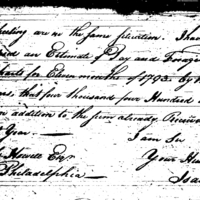 are in the same situation. I have
an Estimate of Pay and Forage
for Eleven months of 1793. By
that four thousand four Hundred
in addition to the sum already Received
Year —
I am Sir
Howell Esqr
Your Hu
Philadelphia —
Isa